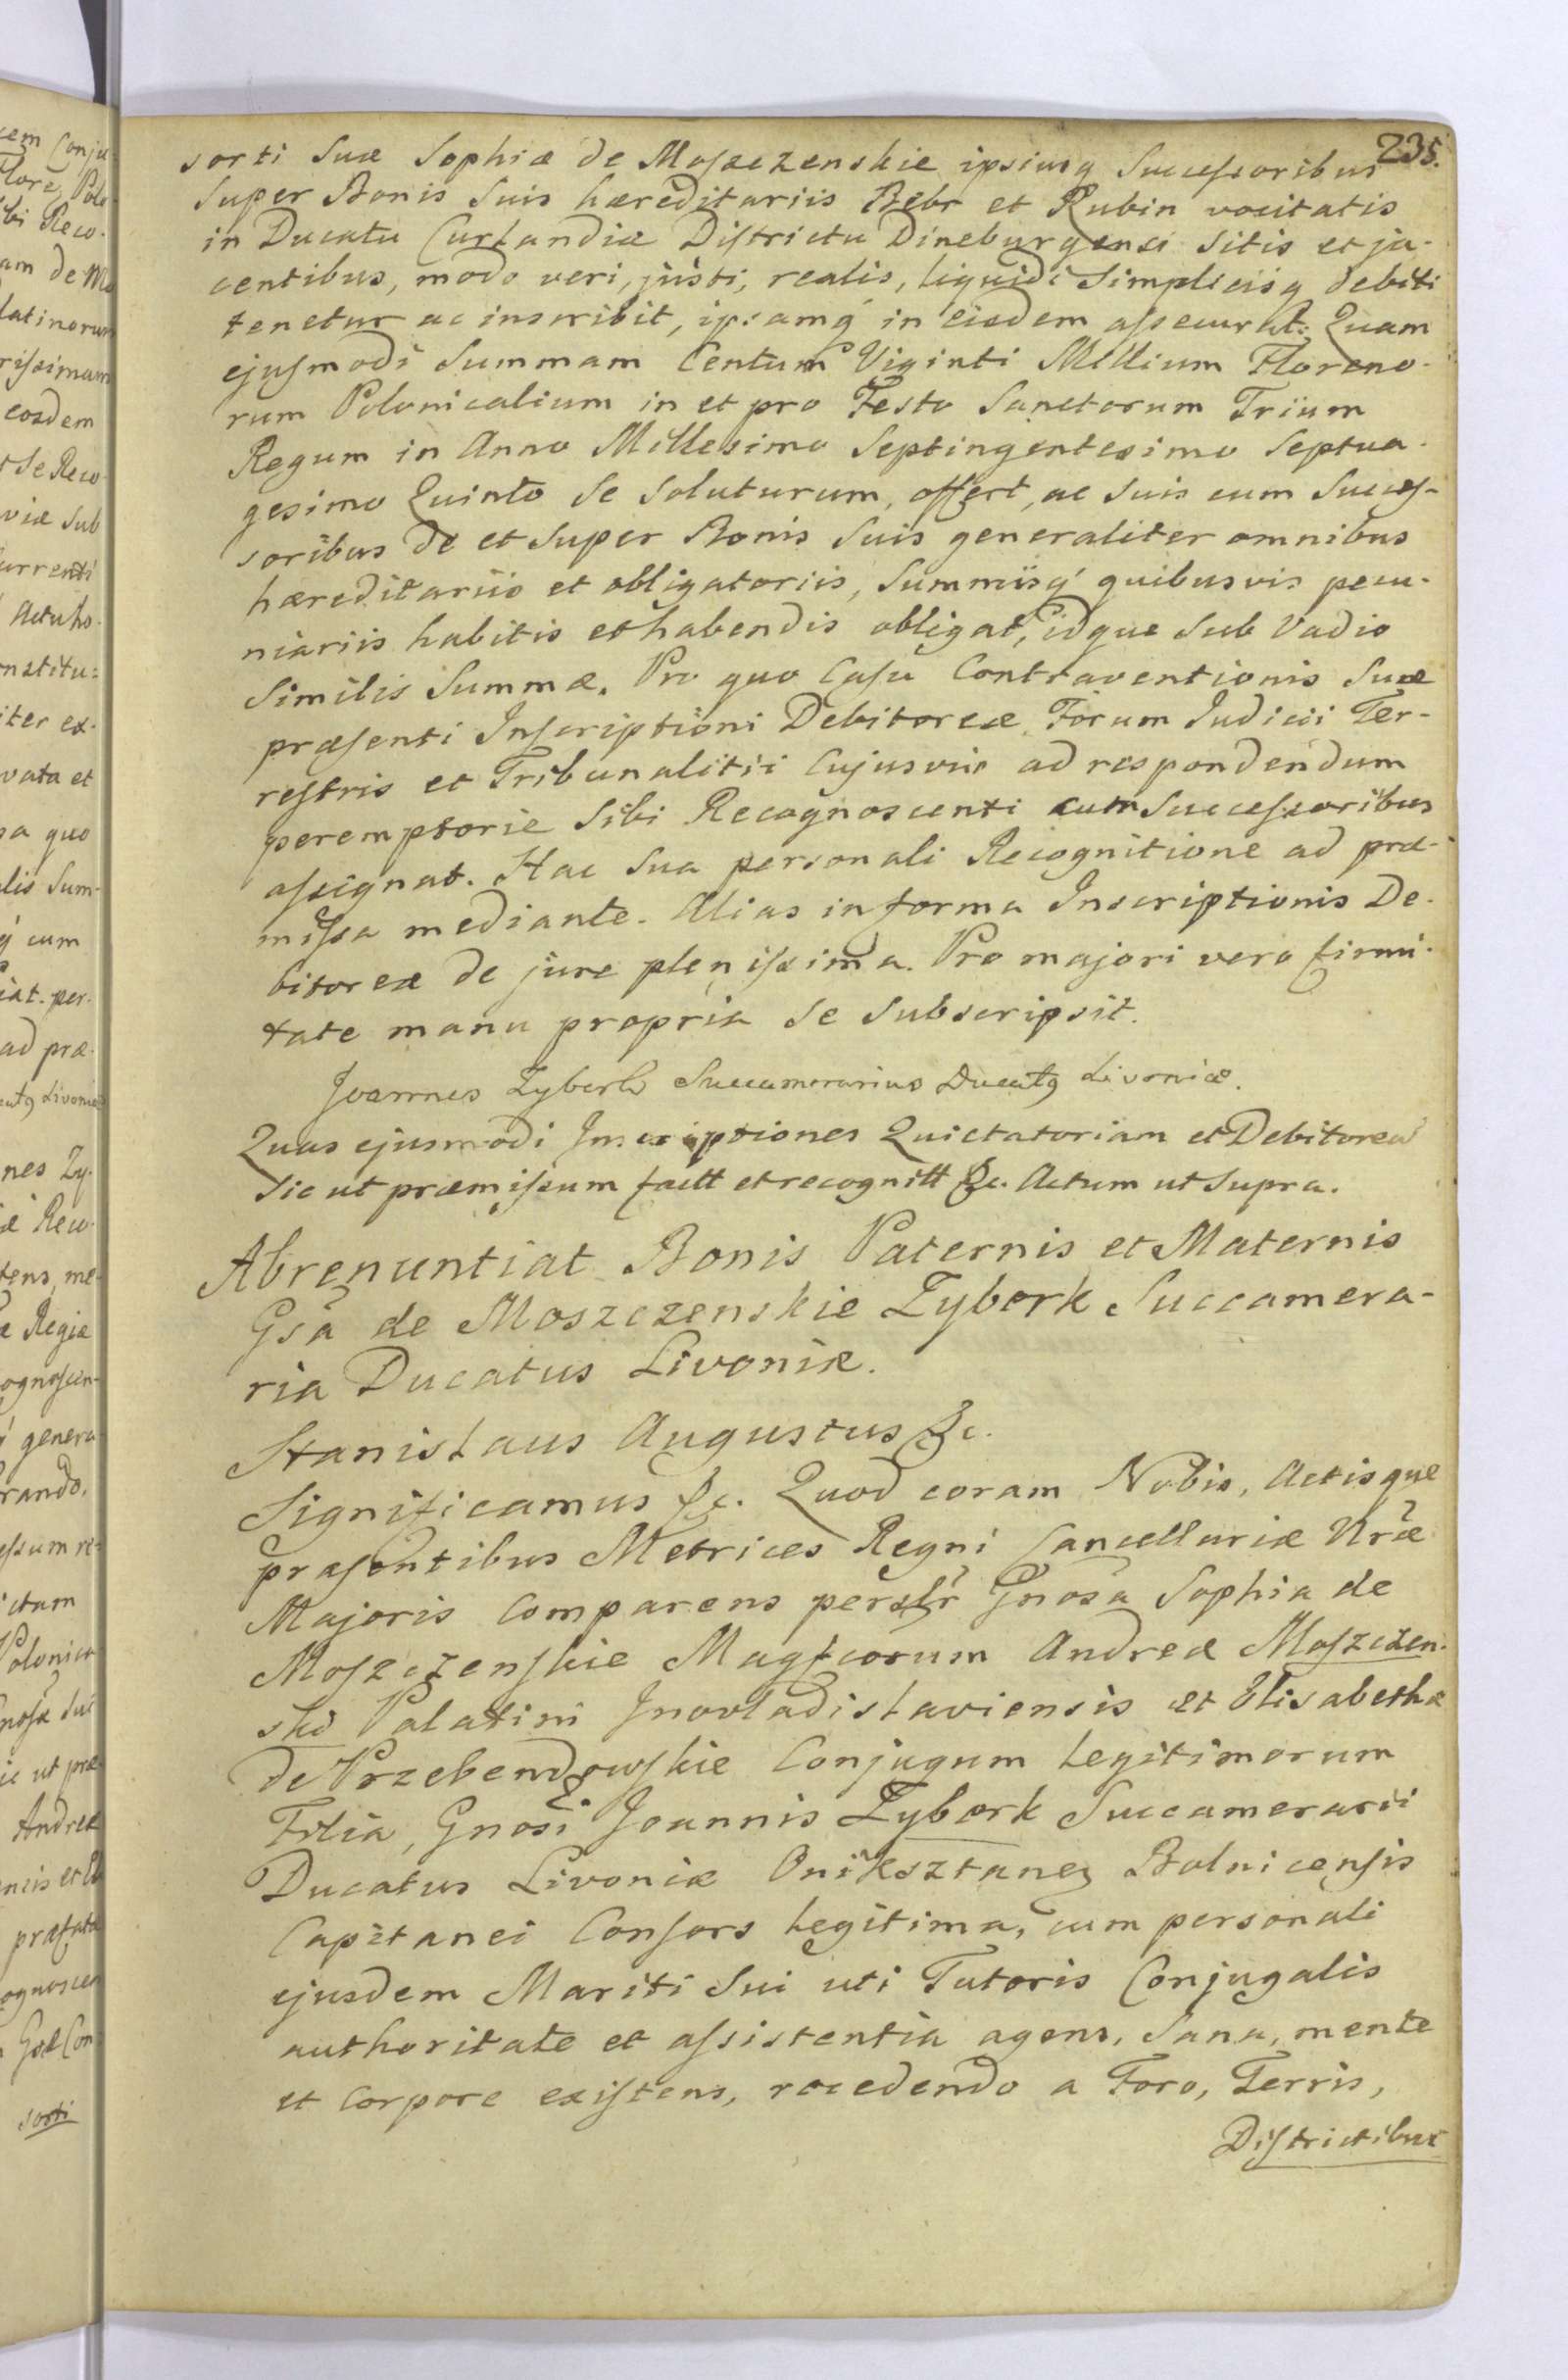 235.
sorti Suæ Sophiæ de Moszczenskie ipsiusq Successoribus
Super Bonis Suis hæreditariis Bebr et Rubin vocitatis
in Ducatu Curlandiæ Districtu Dineburgensi Sitis et ja-
centibus, modo veri, justi, realis, liquidi Simplicisq debiti
tenetur ac inscribit, ipsamq in eisdem assecurat: Quam
ejusmodi Summam Centum Viginti Millium Floreno-
rum Polonicalium in et pro Festo Sanctorum Trium
Regum in Anno Millesimo Septingentesimo Septua-
gesimo Quinto Se Soluturum, offert, ac Suis cum Succes-
soribus de et Super Bonis Suis generaliter omnibus
hæreditariis et obligatoriis, Summiisq quibusvis pecu-
niariis habitis et habendis obligat, idque Sub Vadio
Similis Summæ. Pro quo Casu Contraventionis Suæ
præsenti Inscriptioni Debitoreæ Forum Judicii Ter-
restris et Tribunalitii Cujusvis ad respondendum
peremptorie Sibi Recognoscenti cum Successoribus
assignat. Hac Sua personali Recognitione ad præ-
missa mediante. Alias in forma Inscriptionis De-
bitoreæ de jure plenissima. Pro majori vero firmi-
tate manu propria Se Subscripsit.
Joannes Zyberk Succamerarius Ducatq Livoniæ.
Quas ejusmodi Inscriptiones Quietatoriam et Debitoream
Sic ut præmissum factt et recognitt &c. Actum ut Supra.
Abrenuntiat Bonis Paternis et Maternis
Gsa de Moszczenskie Zyberk Succamera-
ria Ducatus Livoniæ.
Stanislaus Augustus &c.
Significamus &c. Quod coram Nobis, Actisque
præsentibus Metrices Regni Cancellariæ Nræ
Majoris Comparens persltr Gnosa Sophia de
Moszczenskie Magfcorum Andreæ Moszczen-
ski Palatini Inovladislaviensis et Elisabethæ
de Przebendowskie Conjugum Legitimorum
Filia, Gnosi Joannis Zyberk Succamerarii
Ducatus Livoniæ Oniksztaneq Bolnicensis
Capitanei Consors Legitima, cum personali
ejusdem Mariti Sui uti Tutoris Conjugalis
authoritate et assistentia agens, Sana, mente
et Corpore existens, recedendo a Foro, Terris,
Districtibus